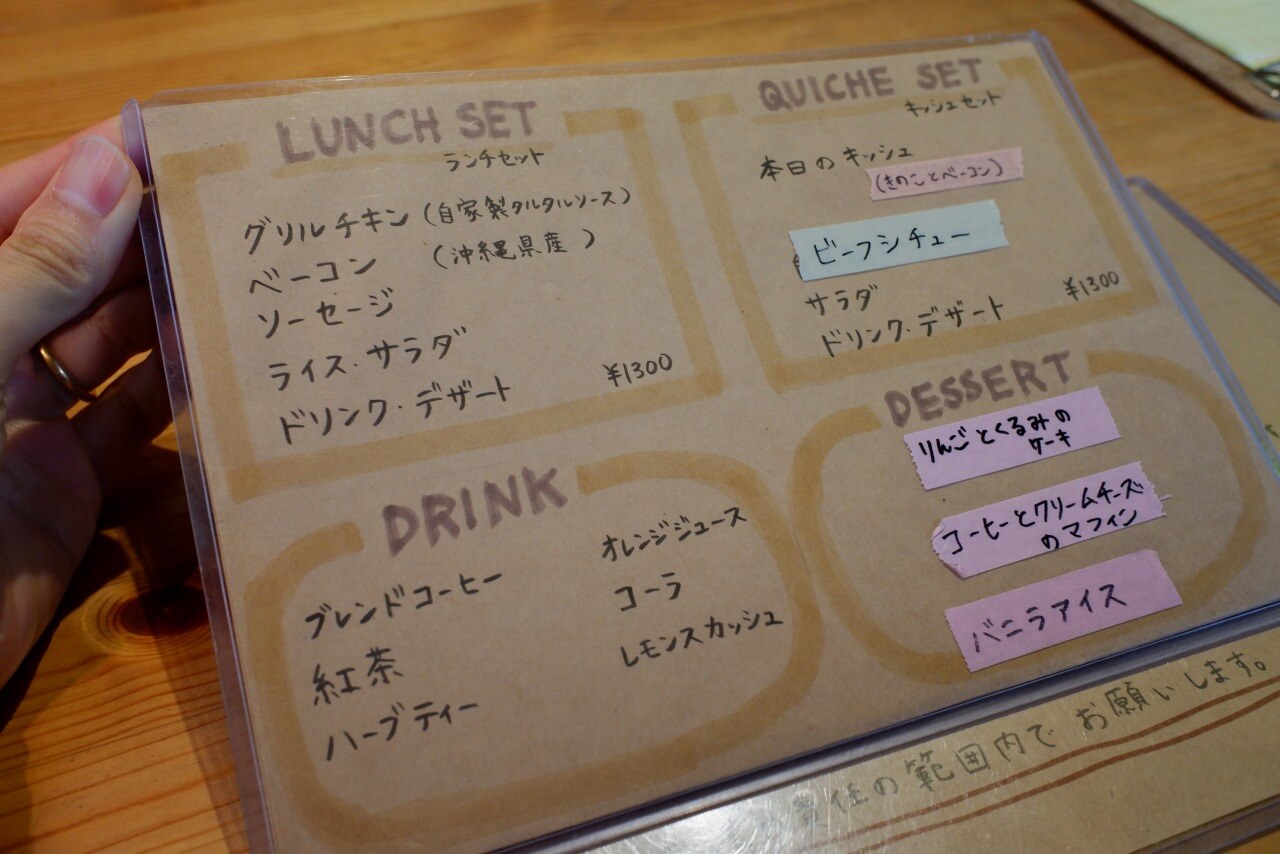 LUNCH SET
ランチセット
グリルチキン (自家製タルタルソース)
ベーコン (沖縄県産)
ソーセージ
ライス・サラダ
ドリンク・デザート ¥1300
QUICHE SET
キッシュセット
本日のキッシュ
(きのことベーコン)
ビーフシチュー
サラダ
ドリンク・デザート ¥1300
DRINK
ブレンドコーヒー
紅茶
ハーブティー
オレンジジュース
コーラ
レモンスカッシュ
DESSERT
りんごとくるみの
ケーキ
コーヒーとクリームチーズ
のマフィン
バニラアイス
の範囲内でお願いします。